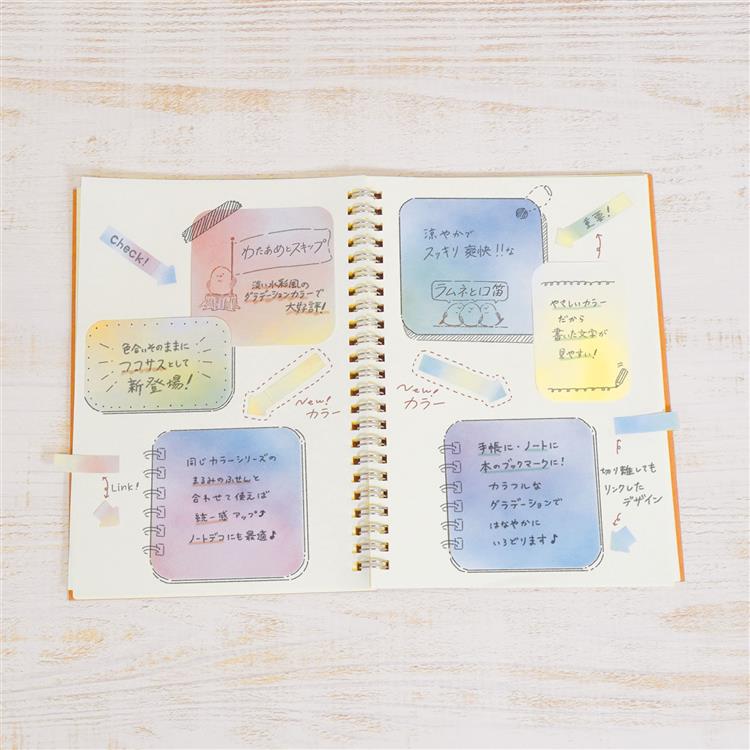 check!
わたあめとスキップ
淡い水彩風の
グラデーションカラーで
大好評!
色合いそのままに
ココサスとして
新登場!
New!
カラー
同じカラーシリーズの
まるみのふせんと
合わせて使えば
統一感アップ♪
ノートデコにも最適♪
Link!
涼やかで
スッキリ爽快!!な
ラムネと口笛
重要!
やさしいカラー
だから
書いた文字が
見やすい!
New!
カラー
手帳に・ノートに
本のブックマークに!
カラフルな
グラデーションで
はなやかに
いろどります♪
切り離しても
リンクした
デザイン